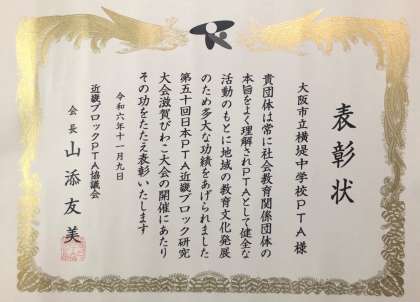 表彰状
大阪市立横堤中学校PTA 様
貴団体は常に社会教育関係団体の
本旨をよく理解されPTAとして健全な
活動のもとに地域の教育文化発展
のため多大な功績をあげられました
第五十回日本PTA近畿ブロック研究
大会滋賀びわこ大会の開催にあたり
その功をたたえ表彰いたします
令和六年十一月九日
近畿ブロックPTA協議会
会長 山添友美